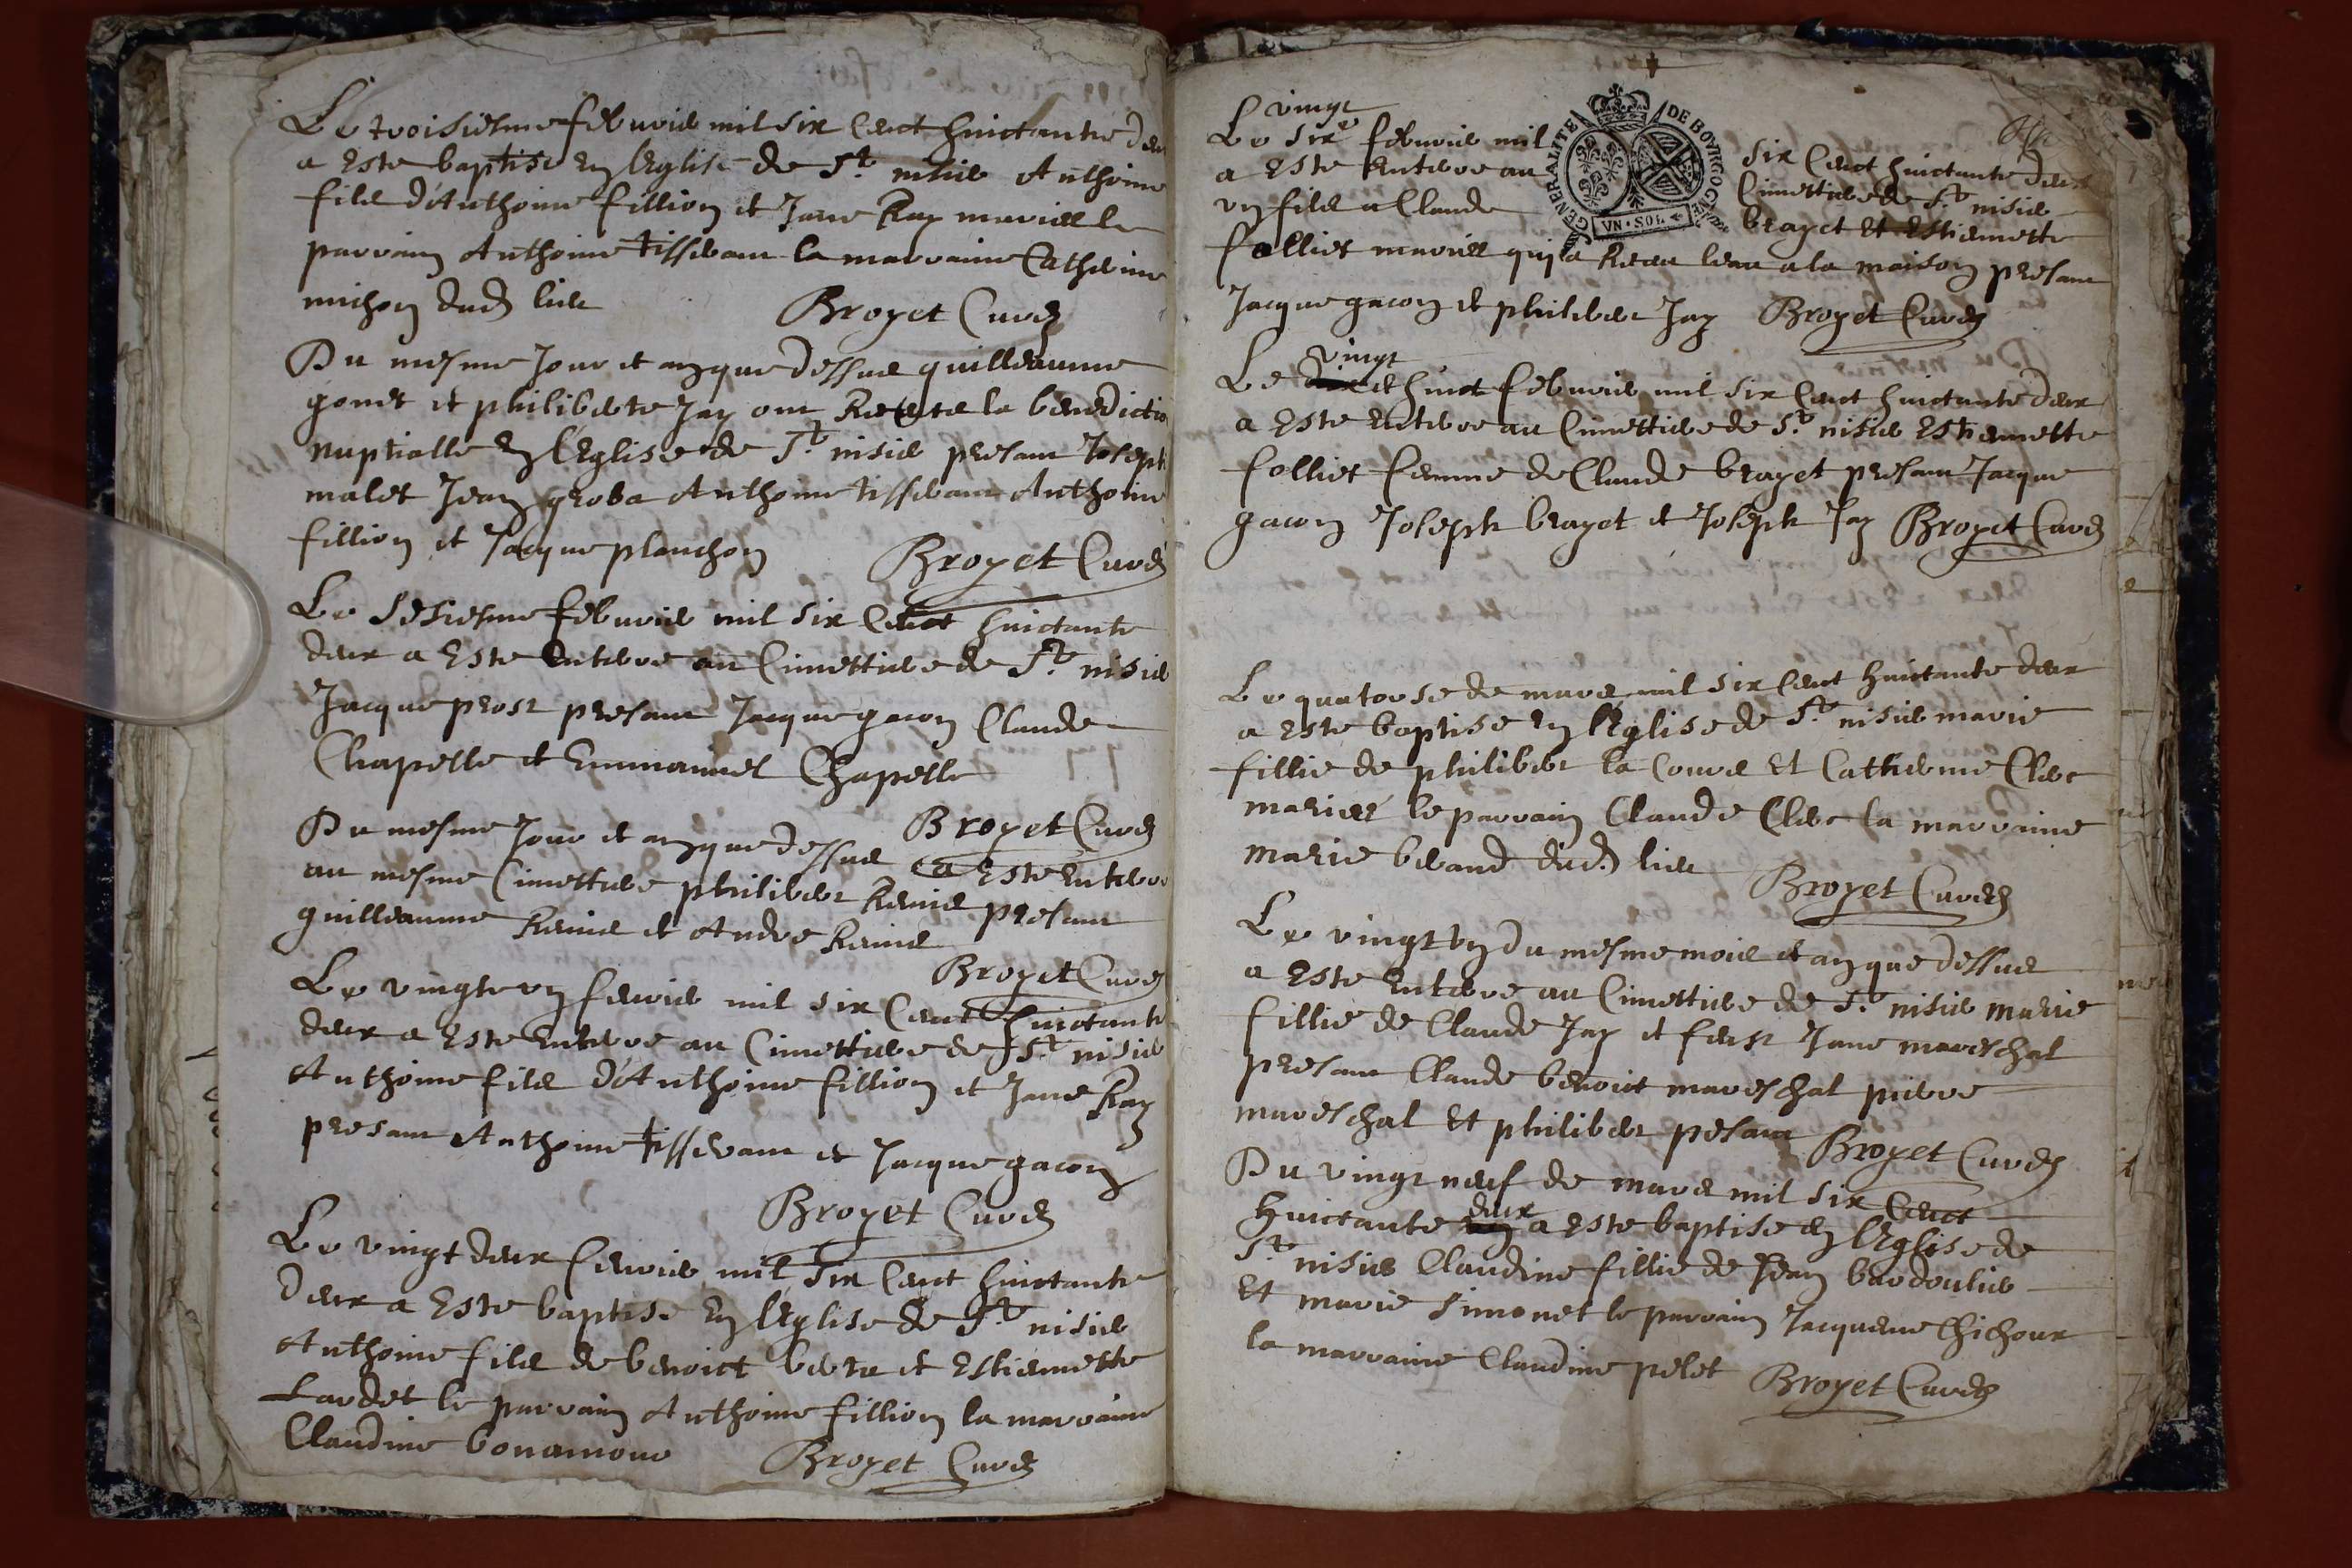 Le troisiesme febvrie mil six cent huictante deu
a este baptise en lEglise de St nisie Anthoine
fils d'Anthoine fillion et Jane Ray maries le
parrain Anthoine tisserant la marraine Catherine
michon dud lieu Broyet Curé
Du mesme Jour et an que dessus guilleaume
gonet et philiberte Jay ont Receu la benedictio
nuptialle en lEglise de St nisie presant Joseph
malet Jean groba Anthoine tisserant Anthoine
fillion et Jacque planchon Broyet Curé
Le sesiesme febvrie mil six cent huictante
deux a este Enterre au Cimettiere de St nisie
Jacque prost presant Jacque gacon Claude
Chapelle et Emmanuel Chapelle
Broyet Curé
Du mesme Jour et an que dessus a este Enterre
au mesme Cimettiere philibert Remie presant
guilleaume Remie et Andre Remie
Broyet Curé
Le vingte un fevrie mil six cent huictante
deux a este Enterre au Cimettiere de St nisie
Anthoine fils d'Anthoine fillion et Jane Ray
presant Anthoine tisserant et Jacque gacon
Broyet Curé
Le vingt deux fevrie mil six cent huictante
deux a este baptise En lEglise de St nisie
Anthoine fils de benoict berta et Estiennette
Lardet le parrain Anthoine fillion la marraine
Claudine bonamour Broyet Curé
vingt
Le six febvrie mil six cent huictante deux
a este Enterre au Cimettiere de St nisie
un fils a Claude brayet et Estiennette
follier maries qui a Receu leau a la maison presant
GENERALITE DE BOVRGOGNE
VN·SOL
Jacque gacon et philiber Jay Broyet Curé
vingt
Le et huict febvrie mil six cent huictante deux
a este Enterre au Cimettiere de St nisie Estiennette
follier femme de Claude brayet presant Jacque
gacon Joseph brayet et Joseph Jay Broyet Curé
Le quatorse de mars mil six cent huictante deux
a este baptise en lEglise de St nisie marie
fillie de philiber la Coure Et Catherine Clerc
maries le parrain Claude Clerc la marraine
marie beraud dud. lieu Broyet Curé
Le vingt un du mesme mois et an que dessus
a este Enterre au Cimettiere de St nisie marie
fillie de Claude Jay et feust Jane mareschal
presant Claude benoict mareschal pierre
mareschal Et philiber presant Broyet Curé
Du vingt neuf de mars mil six cent
huictante deux a este baptise en lEglise de
St nisie Claudine fillie de Jean bardoulie
Et marie simonet le parrain Jacqueme Chichoux
la marraine Claudine pelet Broyet Curé